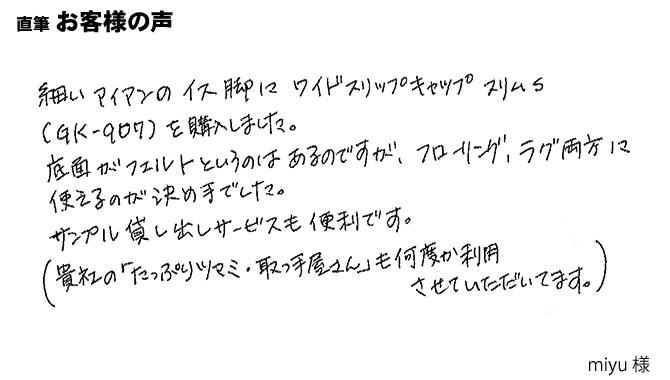 直筆 お客様の声
細いアイアンのイス脚に ワイドスリップキャップ スリムS
(GK-907)を購入しました。
底面がフェルトというのはあるのですが、フローリング、ラグ両方に
使えるのが決め手でした。
サンプル貸し出しサービスも便利です。
(貴社の「たっぷりツマミ・取っ手屋さん」も何度か利用
させていただいてます。)
miyu 様